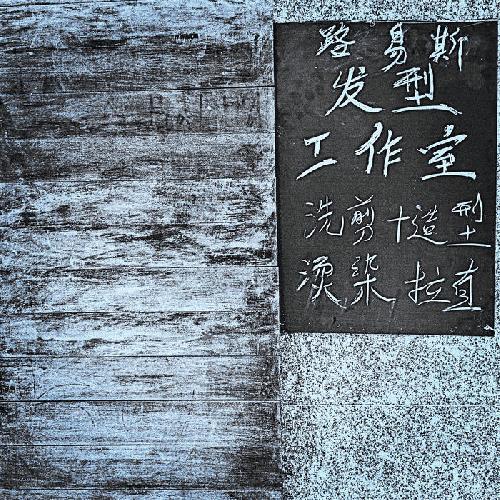 路易斯
发型
工作室
洗剪+造型
烫染 拉直